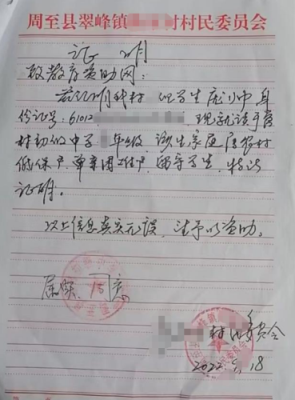 周至县翠峰镇 村村民委员会
证 明
致教育资助网：
兹证明我村 组学生庞 中 身
份证号：61012 现就读于
村初级中学 年级 该生家庭属农村
低保户、单亲困难户，留守学生，特此
证明。
以上信息真实无误，请予以资助。
属实 同意
村民委员会
2022.9.18